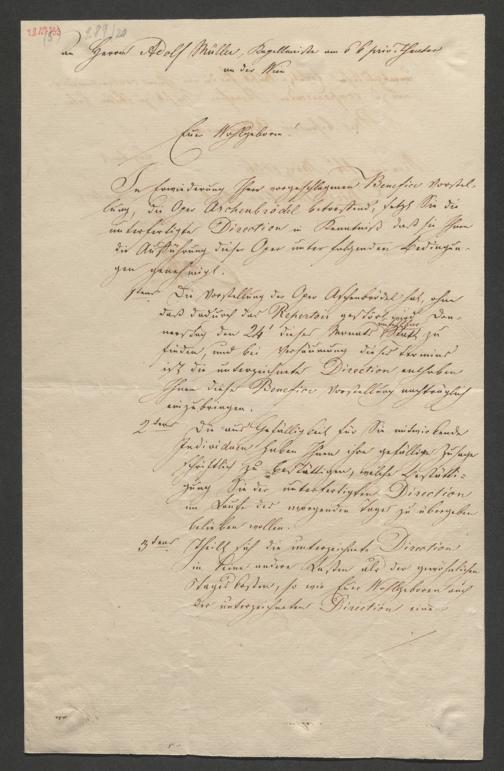 289/20
An Herrn Adolf Müller, Kapellmeister am k k priv: Theater
an der Wien
Euer Wohlgeboren!
In Erwiederung Ihrer vorgeschlagenen Benefice Vorstel-
lung, die Oper Aschenbrödel betreffend, setzt Sie die
unterfertigte Direction in Kenntniß daß sie Ihnen
die Aufführung dieser Oper unter folgenden Bedingun-
gen genehmigt.
1tens Die Vorstellung der Oper Aschenbrödel hat, ohne
daß dadurch das Repertoir gestört wird Don-
nerstag den 24t dieses Monats Statt zu
finden, und bei Versäumung dieses Termins
ist die unterzeichnete Direction enthoben
Ihnen diese Benefice Vorstellung nachträglich
einzubringen.
2tens Die aus Gefälligkeit für Sie mitwirkende
Individuen haben Ihnen ihre gefällige Zusage
schriftlich zu bestättigen, welche Bestätti-
gung Sie der unterfertigten Direction
im Laufe des morgenden Tages zu übergeben
belieben wollen.
3tens Theilt sich die unterzeichnete Direction
in keine andere Kosten als der gewöhnlichen
Tageskosten, so wie Euer Wohlgeboren auch
der unterzeichneten Direction eine